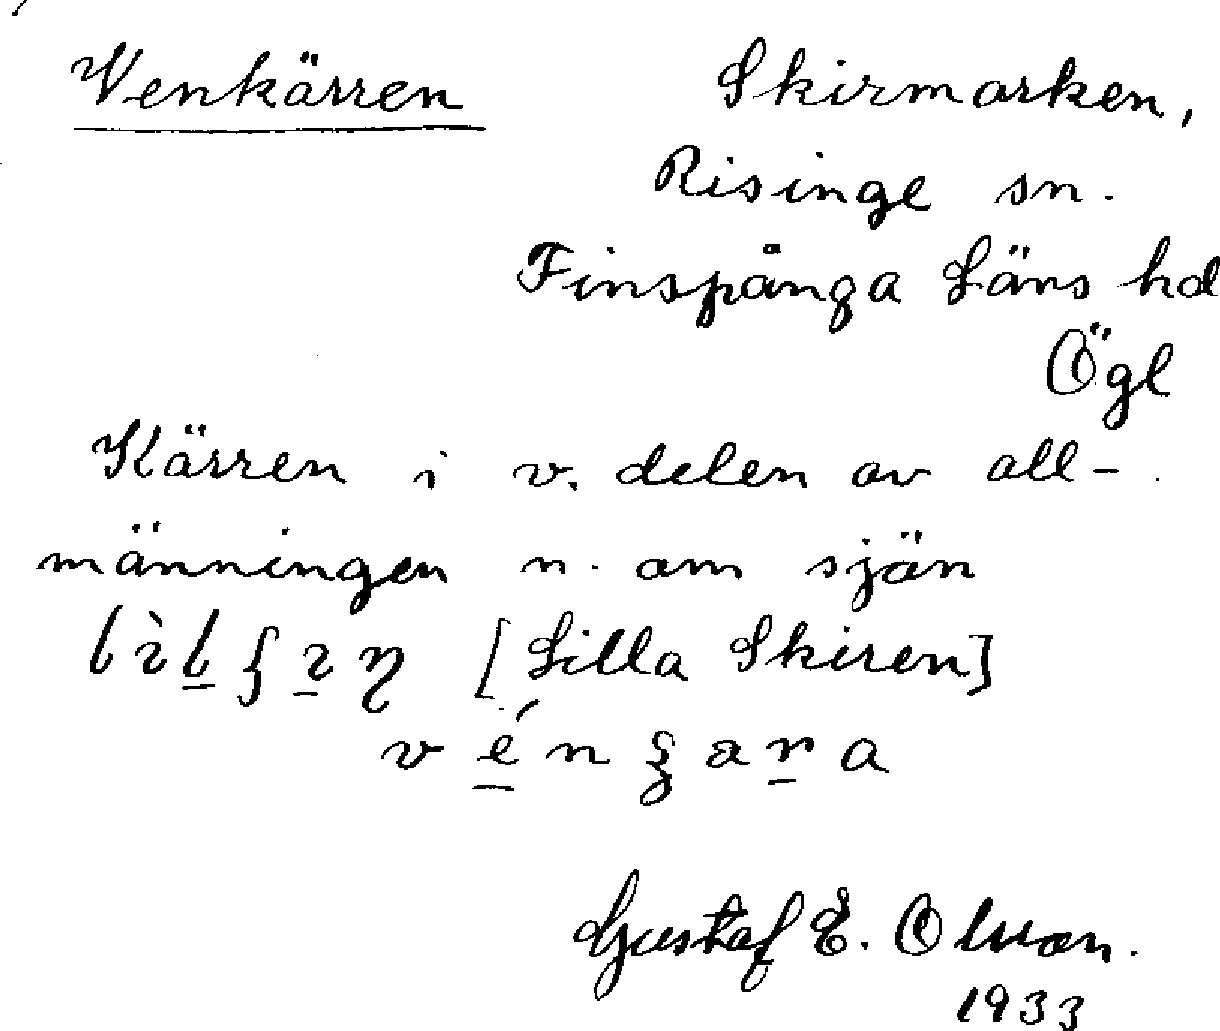 Venkärren Skirmarken,
Risinge sn.
Finspånga Läns hd
Ögl
Kärren i v. delen av all-
männingen n. om sjön
[Lilla Skiren]
Gustaf E. Olsson.
1933